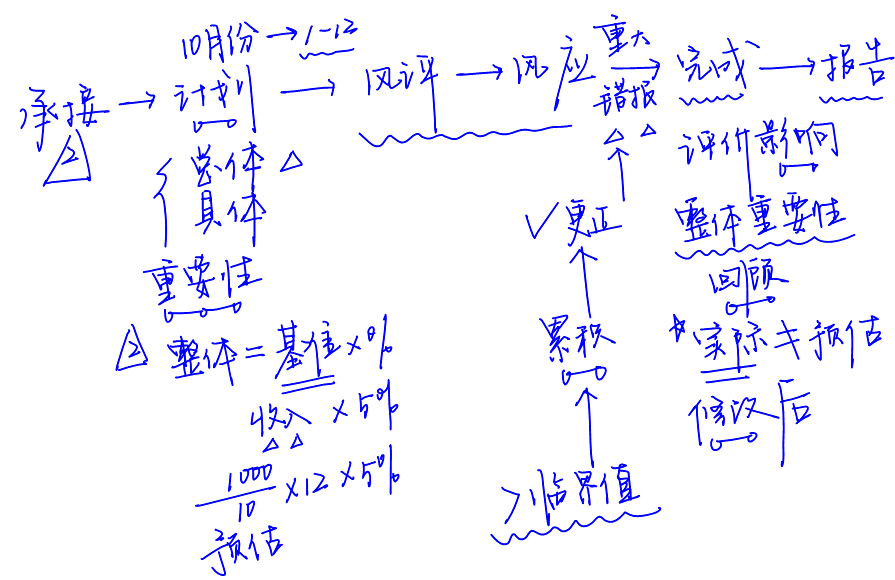 10月份→1-12
承接→计划→风评→风应→完成→报告
重大
错报
总体
具体
重要性
整体=基准×%
收入×5%
1000/10×12×5%
预估
✓更正
累积
>临界值
评价影响
整体重要性
回顾
*实际≠预估
修改后